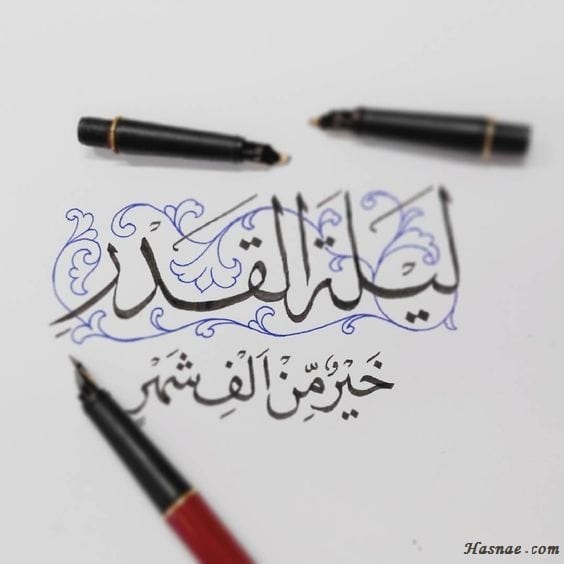 ليلة القدر
خَيْرٌ مِّنْ اَلْفِ شَهْرٍ
Hasnae.com